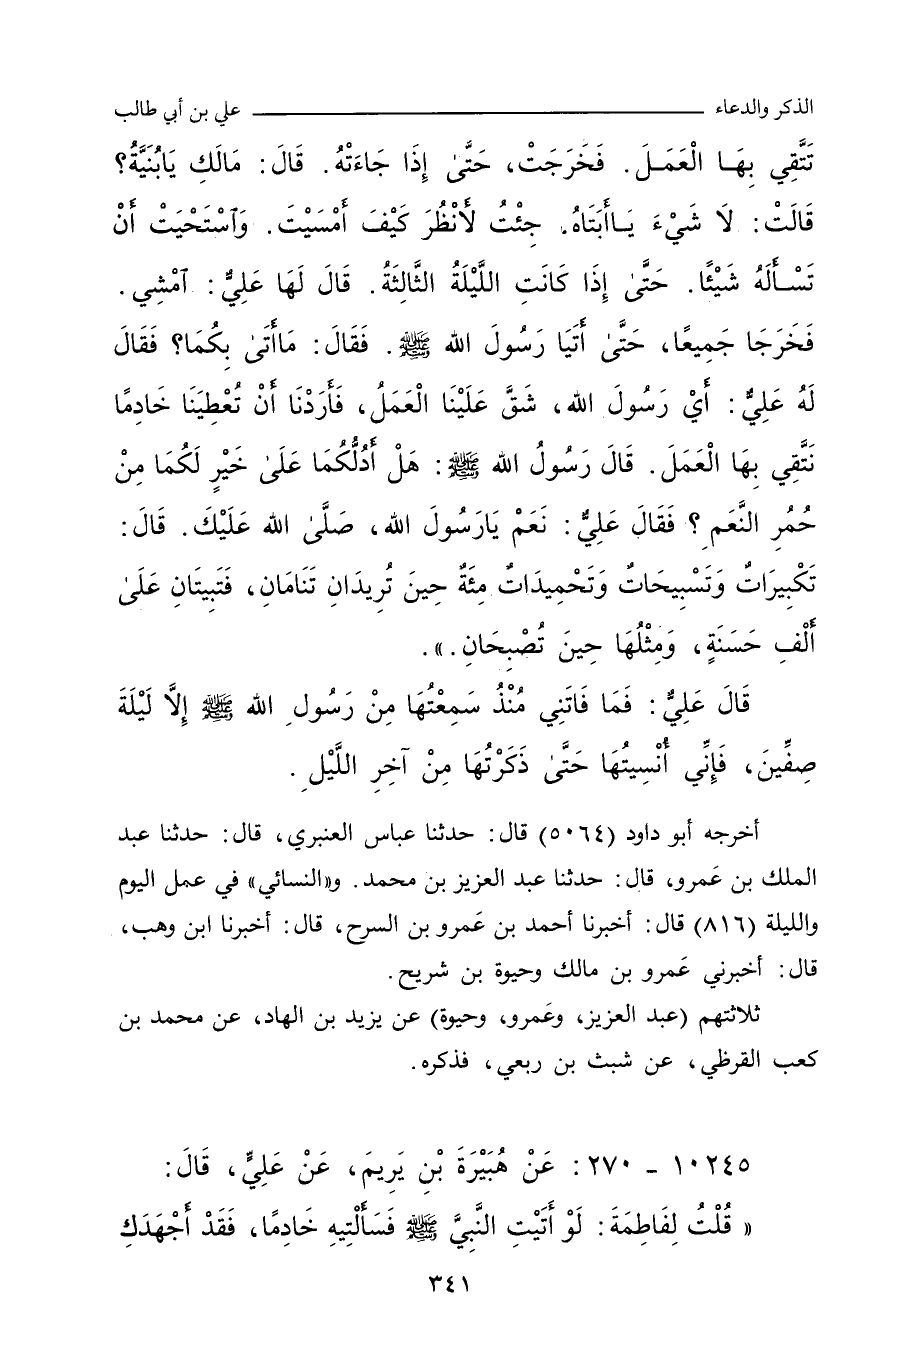 الذكر والدعاء ــــــــــــــــ علي بن أبي طالب
تَتَّقِي بِهَا الْعَمَلَ. فَخَرَجَتْ، حَتَّىٰ إِذَا جَاءَتْهُ. قَالَ: مَالَكِ يَابُنَيَّةُ؟
قَالَتْ: لَا شَيْءَ يَاأَبَتَاهُ. جِئْتُ لأَنْظُرَ كَيْفَ أَمْسَيْتَ. وَٱسْتَحْيَتْ أَنْ
تَسْأَلَهُ شَيْئًا. حَتَّىٰ إِذَا كَانَتِ اللَّيْلَةُ الثَّالِثَةُ. قَالَ لَهَا عَلِيٌّ: ٱمْشِي.
فَخَرَجَا جَمِيعًا، حَتَّىٰ أَتَيَا رَسُولَ الله ﷺ. فَقَالَ: مَاأَتَىٰ بِكُمَا؟ فَقَالَ
لَهُ عَلِيٌّ: أَيْ رَسُولَ الله، شَقَّ عَلَيْنَا الْعَمَلُ، فَأَرَدْنَا أَنْ تُعْطِيَنَا خَادِمًا
نَتَّقِي بِهَا الْعَمَلَ. قَالَ رَسُولُ الله ﷺ: هَلْ أَدُلُّكُمَا عَلَىٰ خَيْرٍ لَكُمَا مِنْ
حُمُرِ النَّعَمِ؟ فَقَالَ عَلِيٌّ: نَعَمْ يَارَسُولَ الله، صَلَّىٰ الله عَلَيْكَ. قَالَ:
تَكْبِيرَاتٌ وَتَسْبِيحَاتٌ وَتَحْمِيدَاتٌ مِئَةٌ حِينَ تُرِيدَانِ تَنَامَانِ، فَتَبِيتَانِ عَلَىٰ
أَلْفِ حَسَنَةٍ، وَمِثْلُهَا حِينَ تُصْبِحَانِ.».
قَالَ عَلِيٌّ: فَمَا فَاتَنِي مُنْذُ سَمِعْتُهَا مِنْ رَسُولِ الله ﷺ إِلَّا لَيْلَةَ
صِفِّينَ، فَإِنِّي أُنْسِيتُهَا حَتَّىٰ ذَكَرْتُهَا مِنْ آخِرِ اللَّيْلِ.
أخرجه أبو داود (٥٠٦٤) قال: حدثنا عباس العنبري، قال: حدثنا عبد
الملك بن عَمرو، قال: حدثنا عبد العزيز بن محمد. و«النسائي» في عمل اليوم
والليلة (٨١٦) قال: أخبرنا أحمد بن عَمرو بن السرح، قال: أخبرنا ابن وهب،
قال: أخبرني عَمرو بن مالك وحيوة بن شريح.
ثلاثتهم (عبد العزيز، وعَمرو، وحيوة) عن يزيد بن الهاد، عن محمد بن
كعب القرظي، عن شبث بن ربعي، فذكره.
١٠٢٤٥ - ٢٧٠: عَنْ هُبَيْرَةَ بْنِ يَرِيمَ، عَنْ عَلِيٍّ، قَالَ:
« قُلْتُ لِفَاطِمَةَ: لَوْ أَتَيْتِ النَّبِيَّ ﷺ فَسَأَلْتِيهِ خَادِمًا، فَقَدْ أَجْهَدَكِ
٣٤١